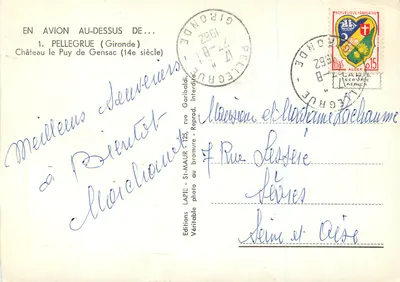 EN AVION AU-DESSUS DE...
1. PELLEGRUE (Gironde)
Château le Puy de Gensac (14e siècle)
PELLEGRUE
GIRONDE
17 H
1962
Meilleurs Souvenirs
à Bientôt
Editions LAPIE - St-MAUR - 125, rue Garibaldi
Véritable photo au bromure - Reprod. Interdite
REPUBLIQUE FRANÇAISE
0,15
PELLEGRUE
GIRONDE
1962
Monsieur et Madame Lachaume
7 Rue
Sèvres
Seine et Oise